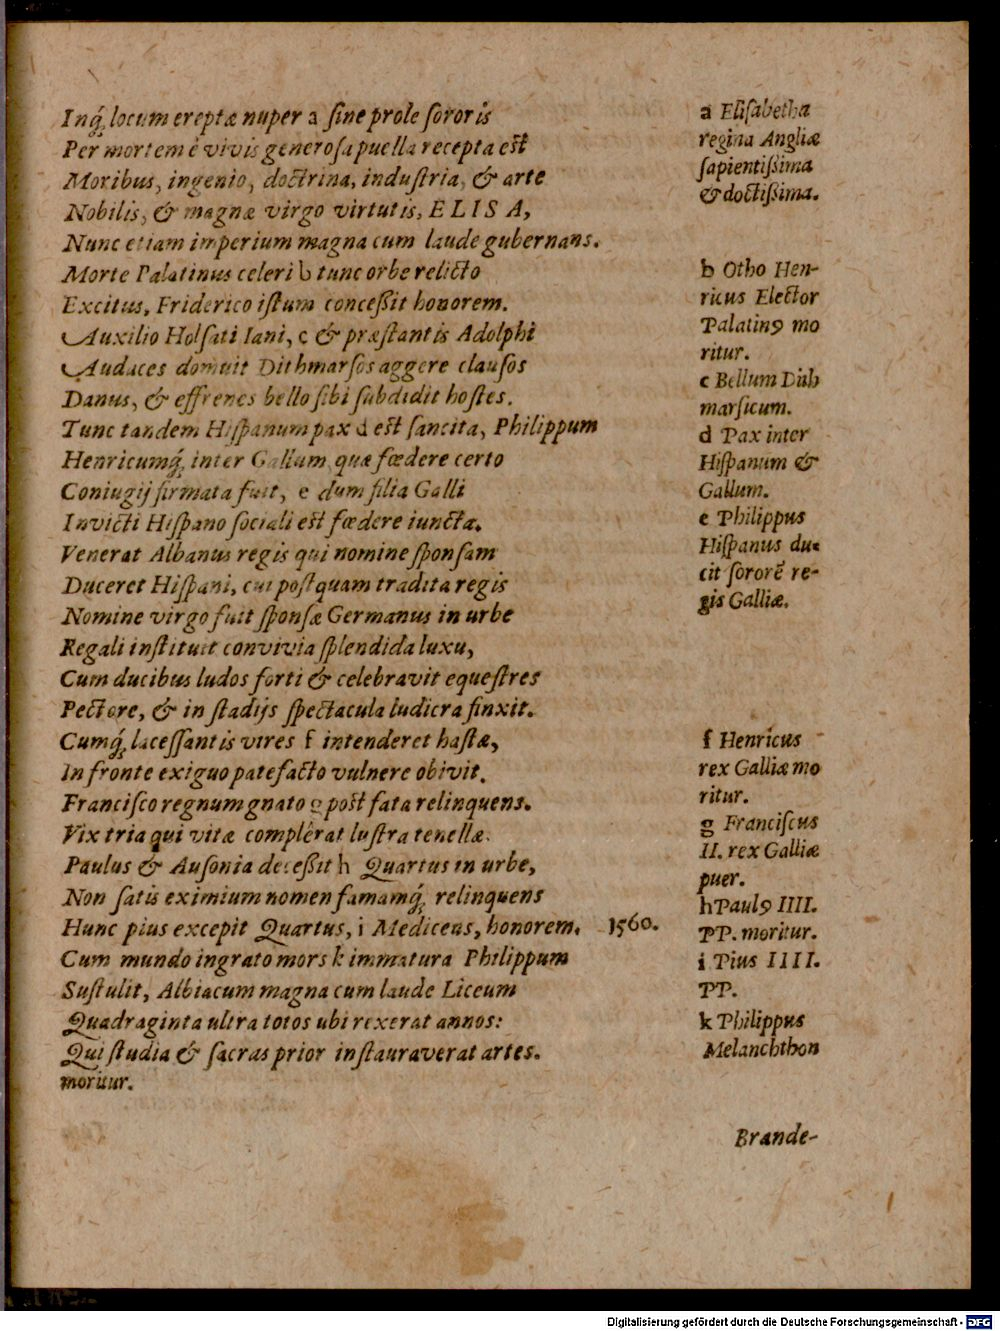 Inq́; locum ereptæ nuper a ſine prole ſororis
Per mortem è vivis generoſa puella recepta eſt
Moribus, ingenio, doctrina, induſtria, & arte
Nobilis, & magnæ virgo virtutis, ELISA,
Nunc etiam imperium magna cum laude gubernans.
Morte Palatinus celeri b tunc orbe relicto
Excitus, Friderico iſtum conceßit honorem.
Auxilio Holſati Iani, c & præſtantis Adolphi
Audaces domuit Dithmarſos aggere clauſos
Danus, & effrenes bello ſibi ſubdidit hoſtes.
Tunc tandem Hiſpanum pax d eſt ſancita, Philippum
Henricumq́; inter Gallum, quæ fœdere certo
Coniugij firmata fuit, e dum filia Galli
Invicti Hiſpano ſociali eſt fœdere iuncta.
Venerat Albanus regis qui nomine ſponſam
Duceret Hiſpani, cui poſtquam tradita regis
Nomine virgo fuit ſponſæ Germanus in urbe
Regali inſtituit convivia ſplendida luxu,
Cum ducibus ludos forti & celebravit equeſtres
Pectore, & in ſtadijs ſpectacula ludicra finxit.
Cumq́; laceſſantis vires f intenderet haſtæ,
In fronte exiguo patefacto vulnere obivit.
Franciſco regnum gnato g poſt fata relinquens.
Vix tria qui vitæ complêrat luſtra tenellæ.
Paulus & Auſonia deceßit h Quartus in urbe,
Non ſatis eximium nomen famamq́; relinquens
Hunc pius excepit Quartus, i Mediceus, honorem. 1560.
Cum mundo ingrato mors k immatura Philippum
Suſtulit, Albiacum magna cum laude Liceum
Quadraginta ultra totos ubi rexerat annos:
Qui ſtudia & ſacras prior inſtauraverat artes.
moritur.
a Eliſabetha
regina Angliæ
ſapientißima
& doctißima.
b Otho Hen-
ricus Elector
Palatinꝰ mo
ritur.
c Bellum Dith
marſicum.
d Pax inter
Hiſpanum &
Gallum.
e Philippus
Hiſpanus du-
cit ſororē re-
gis Galliæ.
f Henricus
rex Galliæ mo
ritur.
g Franciſcus
II. rex Galliæ
puer.
h Paulꝰ IIII.
PP. moritur.
i Pius IIII.
PP.
k Philippus
Melanchthon
Brande-
Digitalisierung gefördert durch die Deutsche Forschungsgemeinschaft - DFG